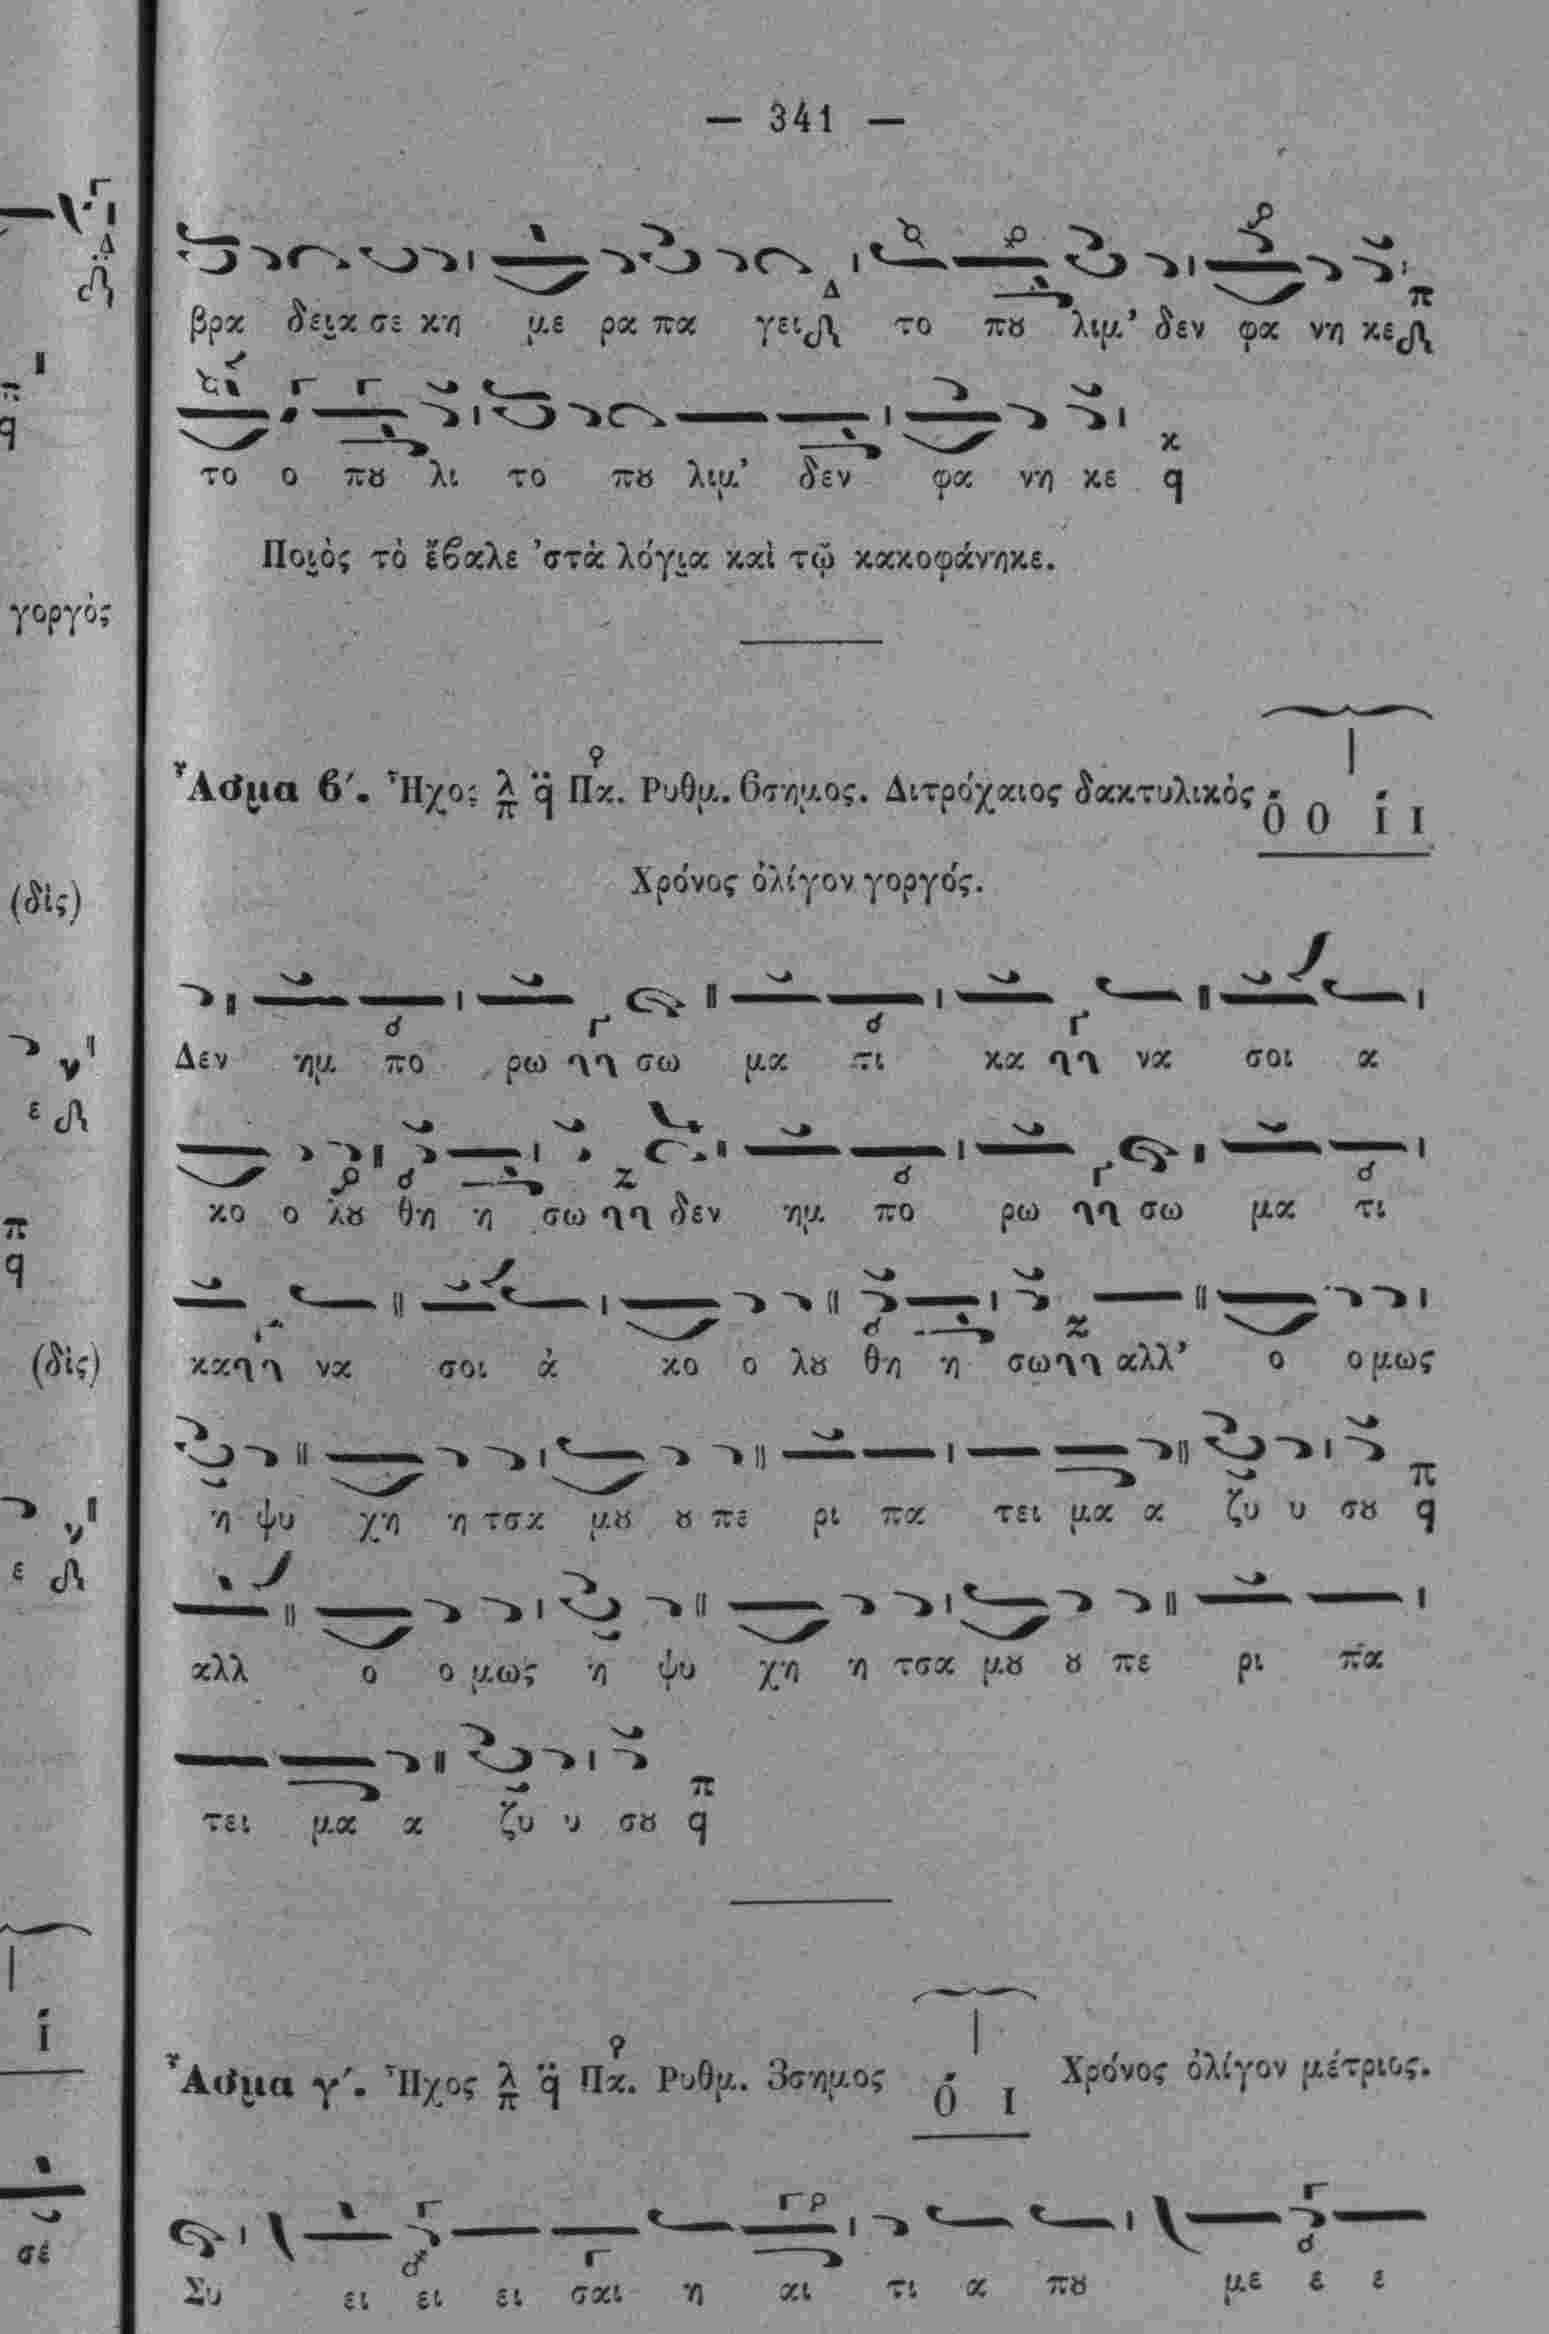 — 341 —
βρα δεια σε κη με ρα πα γει το πȣ λιμ' δεν φα νη κε
το ο πȣ λι το πȣ λιμ' δεν φα νη κε
Ποιὸς τὸ ἔβαλε 'στὰ λόγια καὶ τῷ κακοφάνηκε.
Ἆσμα β΄. Ἦχος λ π q Πα. Ρυθμ. 6σημος. Διτρόχαιος δακτυλικὸς Ó O Í I
Χρόνος ὀλίγον γοργός.
Δεν ημ πο ρω σω μα τι κα να σοι α
κο ο λȣ θη η σω δεν ημ πο ρω σω μα τι
κα να σοι ἀ κο ο λȣ θη η σω αλλ' ο ο μως
ἡ ψυ χη η τσα μȣ ȣ πε ρι πα τει μα α ζυ υ σȣ
αλλ ο ο μως ἡ ψυ χη η τσα μȣ ȣ πε ρι πα
τει μα α ζυ υ σȣ
Ἆσμα γ΄. Ἦχος λ π q Πα. Ρυθμ. 3σημος Ó I Χρόνος ὀλίγον μέτριος.
Συ ει ει ει σαι η αι τι α πȣ με ε ε
γοργός
(δὶς)
(δὶς)
σέ